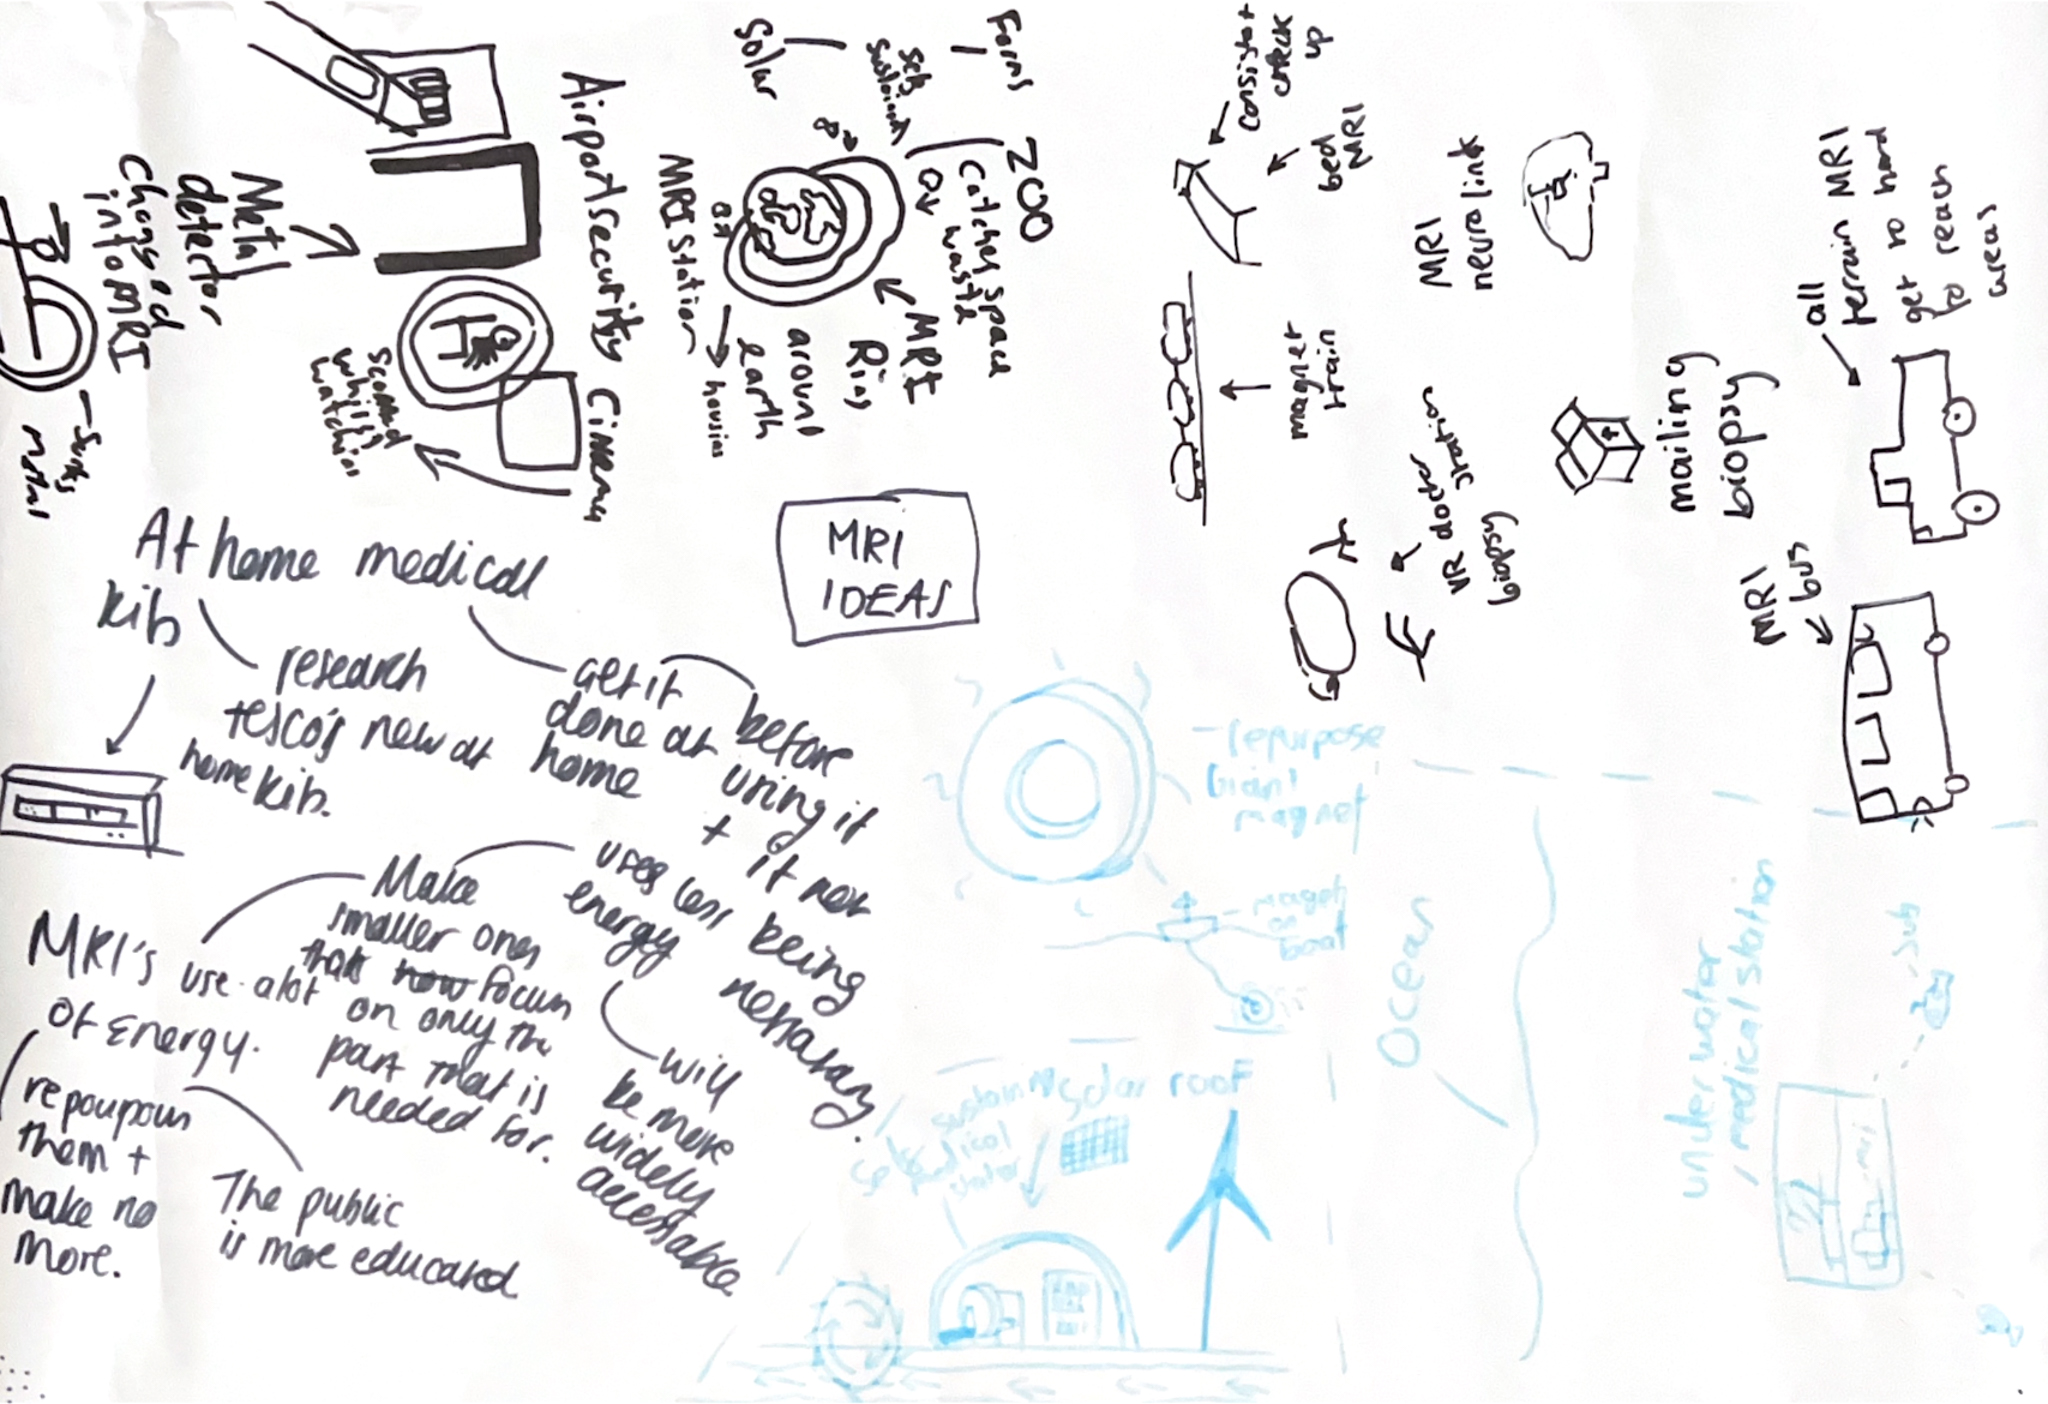 MRI
IDEAS
At home medical
kits
research
tesco's new at
home kits.
Get it
done at
home
before
using it
+ it not
being
nessasary.
Make
smaller ones
that focus
on only the
part that is
needed for.
uses less
energy
will
be more
widely
accessable
MRI's use alot
of Energy.
repourpous
them +
make no
more.
The public
is more educated
Airport security
Metal
detector
changed
into MRI
Cinema
scanned
whilst
watching
Solar
Farms
ZOO
Catches space
waste
MRI station
housing
MRI
Ring
around
earth
consistant
check
up
bed
MRI
MRI
neuralink
magnet
train
mailing
biopsy
VR doctor station
biopsy
all
terrain MRI
get to hard
to reach
areas
MRI
bus
- repurpose
Giant
magnet
boat
Ocean
under water
medical station
- sub
MRI
Solar roof